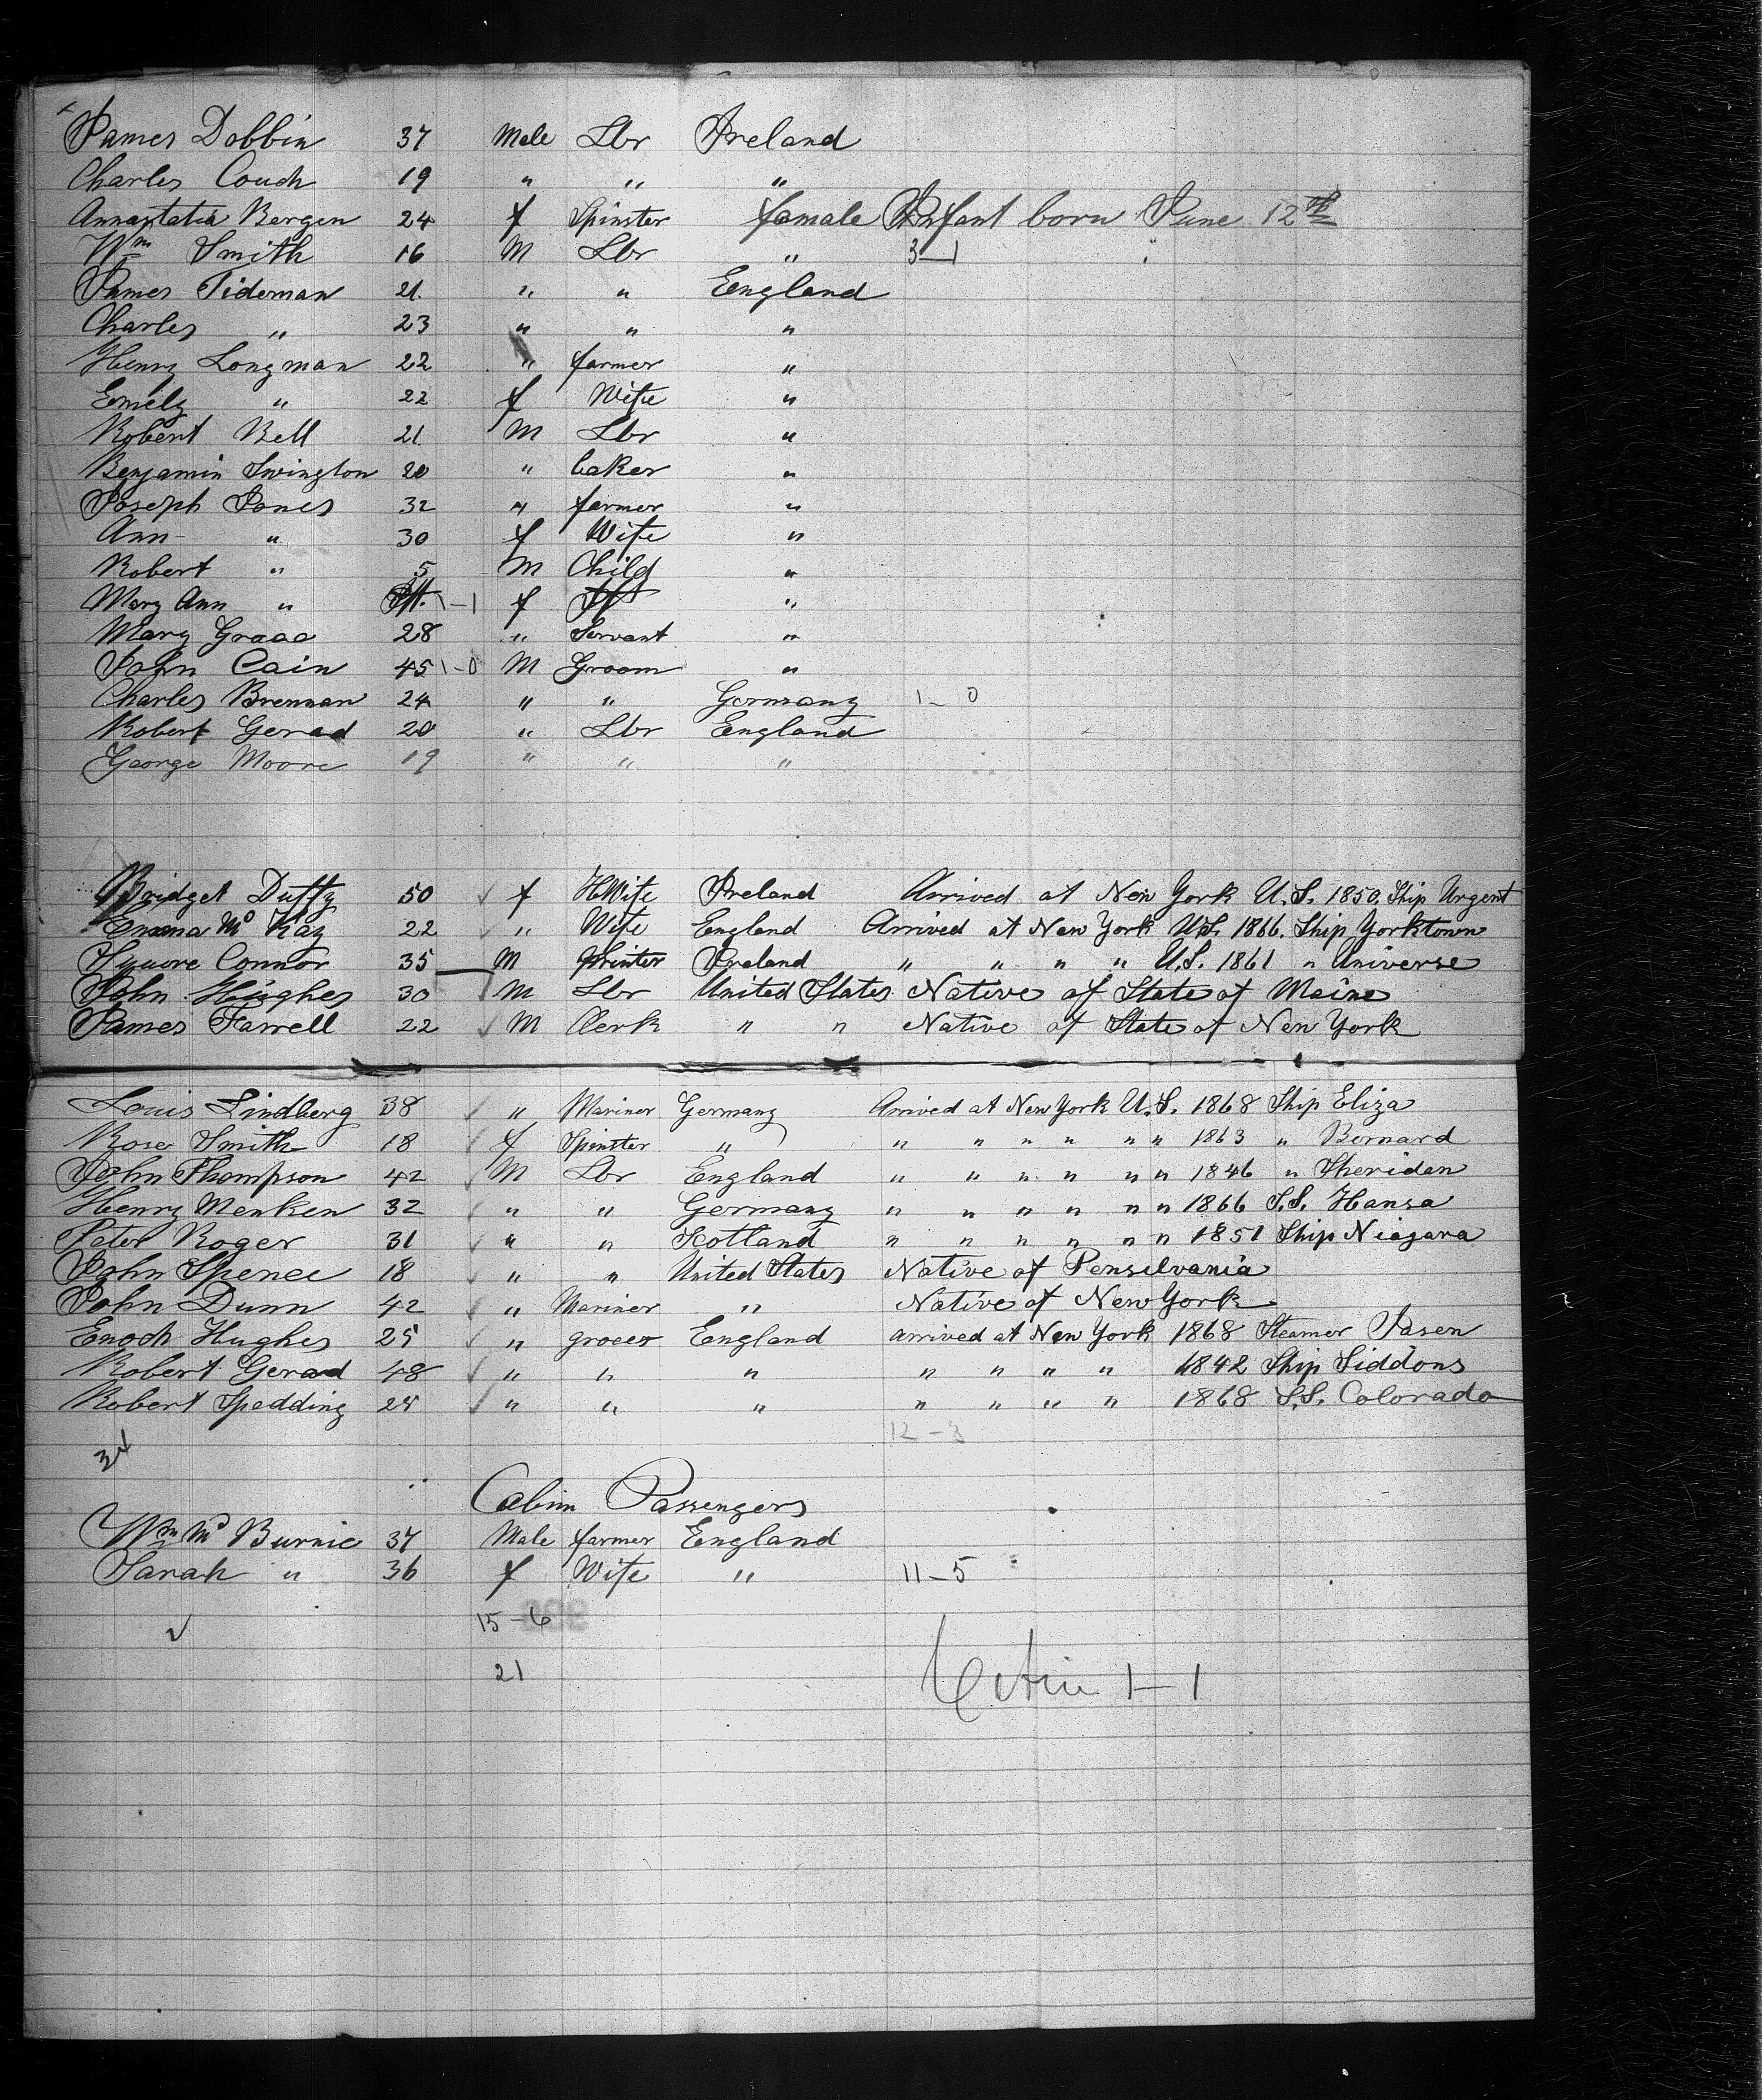 James Dobbin 37 Male Lbr Ireland
Charles Couch 19 " " "
Annastatia Bergen 24 f Spinster female Infant born June 12th
Wm Smith 16 M Lbr " 3-1
James Tideman 21. " " England
Charles " 23 " " "
Henry Longman 22 " farmer "
Emily " 22 f Wife "
Robert Bell 21. M Lbr "
Benjamin Swington 20 " baker "
Joseph Jones 32 " farmer "
Ann " 30 f Wife "
Robert " 5 M Child "
Mary Ann " Inft. 1-1 f Inft "
Mary Graac 28 " Servant "
John Cain 45 1-0 M Groom "
Charles Brennan 24 " " Germany 1-0
Robert Gerad 20 " Lbr England
George Moore 19 " " "
Bridget Duffy 50 ✓ f HWife Ireland Arrived at New York U.S. 1850. Ship Urgent
Emma Mc Kay 22 ✓ " Wife England Arrived at New York U.S. 1866. Ship Yorktown
Connor 35 M Printer Ireland " " " " U.S. 1861 " Universe
John Hughes 30 ✓ M Lbr United States Native of State of Maine
James Farrell 22 ✓ M Clerk " " Native of State of New York
Louis Lindberg 38 ✓ " Mariner Germany Arrived at New York U.S. 1868 Ship Eliza
Rose Smith 18 ✓ f Spinster " " " " " " " 1863 " Bernard
John Thompson 42 ✓ M Lbr England " " " " " " 1846 " Sheridan
Henry Menken 32 ✓ " " Germany " " " " " " 1866 S.S. Hansa
Peter Roger 31 ✓ " " Scotland " " " " " " 1851 Ship Niagara
John Spence 18 ✓ " " United States Native of Pensilvania
John Dunn 42 ✓ " Mariner " Native of New York
Enoch Hughes 25 ✓ " grocer England arrived at New York 1868 Steamer Jasen
Robert Gerad 48 ✓ " " " " " " " 1842 Ship Siddons
Robert Spedding 25 ✓ " " " " " " " 1868 S.S. Colorado
12-3
34
Cabin Passengers
Wm Mc Burnie 37 Male farmer England
Sarah " 36 f Wife " 11-5
✓ 15-6
21 1-1